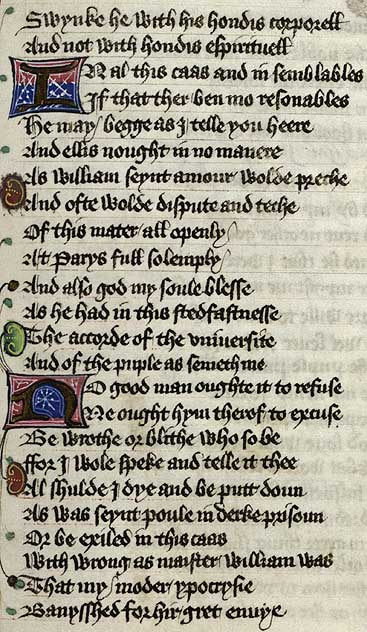 Swynke he with his hondis corporell
And not with hondis espirituell
In al this caas and in semblables
If that ther ben mo resonables
He may / begge as I telle you heere
And ellis nought in no manere
As william seynt amour wolde preche
And ofte wolde dispute and teche
Of this mater all openly /
At Parys full solemply /
And also god my soule blesse
As he had in this stedfastnesse
The accorde of the vniuersite
And of the puple as semeth me
No good man oughte it to refuse
Ne ought hym therof to excuse
Be wrothe or blithe who so be
ffor I wole speke and telle it thee
Al shulde I dye and be putt doun
As was seynt poule in derke prisoun
Or be exiled in this caas
With wrong as maister william was
That my / moder / ypocrysie
Banysshed for hir gret enuye